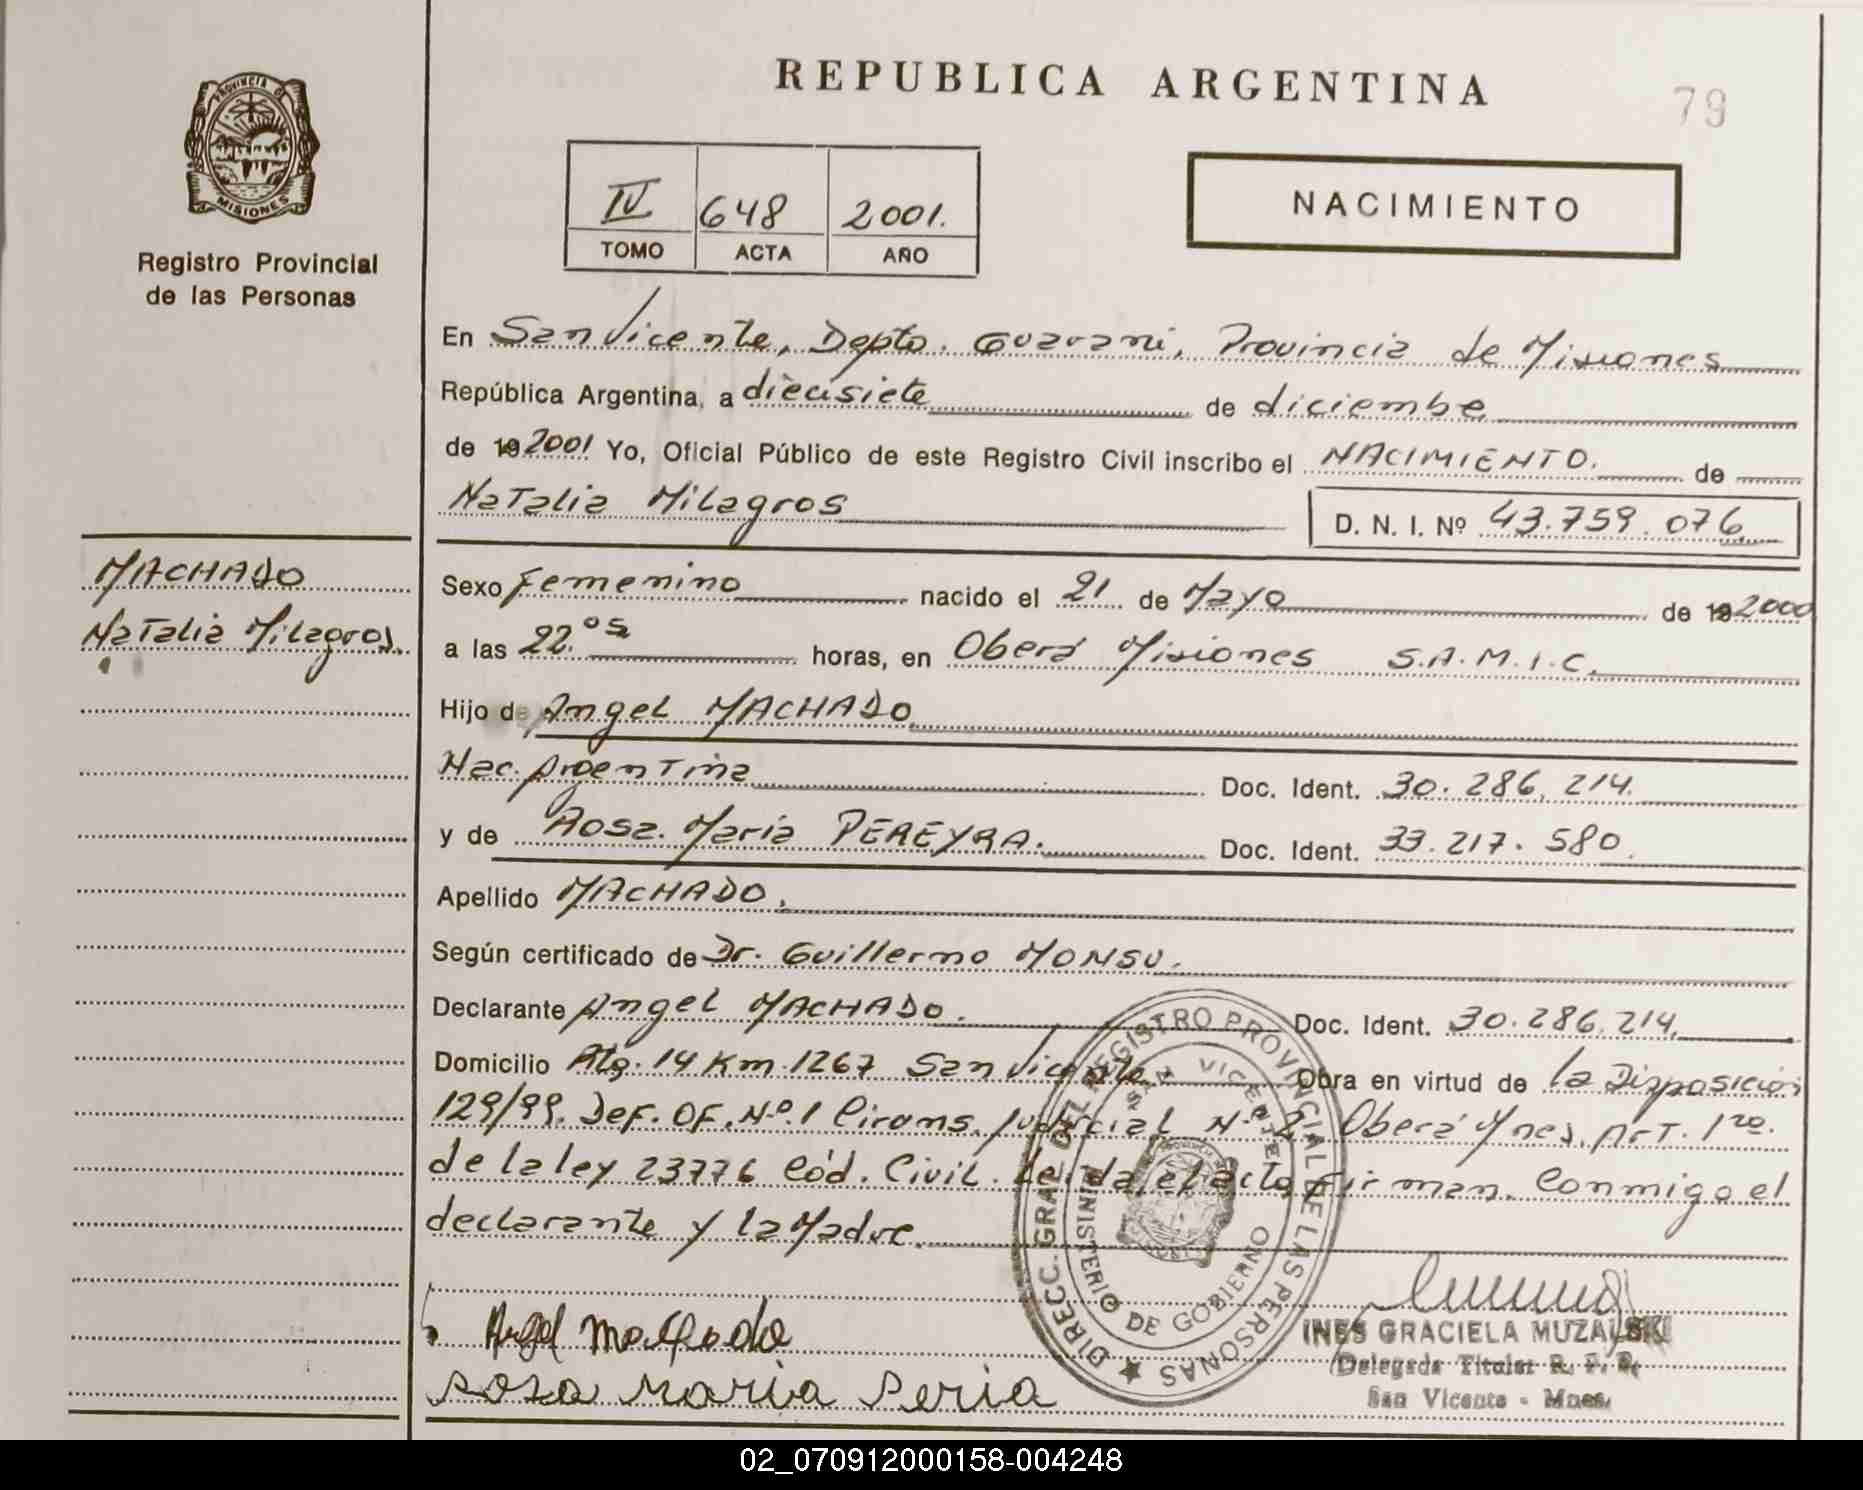 REPUBLICA ARGENTINA
79
PROVINCIA DE
MISIONES
Registro Provincial
de las Personas
IV 648 2001.
TOMO ACTA AÑO
NACIMIENTO
En San Vicente, Depto. Guarani, Provincia de Misiones
República Argentina, a diecisiete de diciembe
de 19 2001 Yo, Oficial Público de este Registro Civil inscribo el NACIMIENTO. de
Natalia Milagros D. N. I. Nº 43.759.076
MACHADO
Natalia Milagros.
Sexo Femenino nacido el 21 de Mayo de 19 2000
a las 22.os horas, en Oberá Misiones S.A.M.I.C.
Hijo de Angel MACHADO
Nac. Argentina Doc. Ident. 30.286.214.
y de Rosa Maria PEREYRA. Doc. Ident. 33.217.580.
Apellido MACHADO.
Según certificado de Dr. Guillermo MONSU.
Declarante Angel MACHADO. Doc. Ident. 30.286.214.
Domicilio Rta. 14 Km. 1267 San Vicente. Obra en virtud de la Disposición
129/99. Def. OF. Nº.1 Circuns. Judicial Nº 2 Oberá Mnes. Art. 1ro.
de la ley 23776 Cód. Civil. Leida el acta firman conmigo el
declarante y la Madre.
DIRECC. GRAL. DEL REGISTRO PROVINCIAL DE LAS PERSONAS
SAN VICENTE
MINISTERIO DE GOBIERNO
Angel Machado
Rosa Maria Peria
INES GRACIELA MUZALSKI
Delegada Titular R. P. P.
San Vicente - Mnes.
02_070912000158-004248